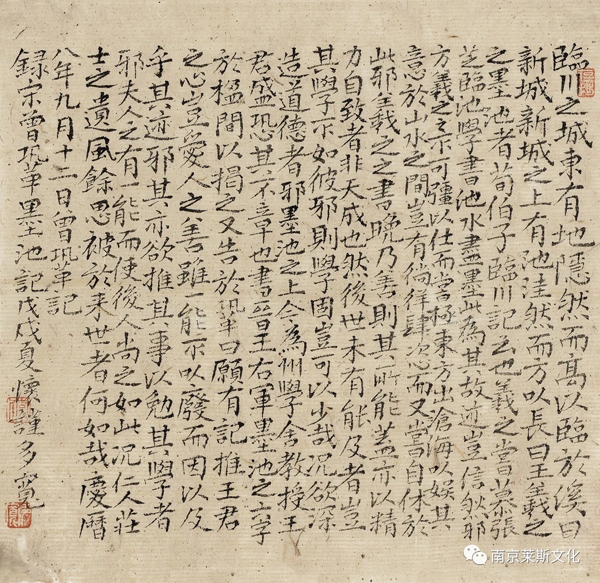 臨川之城東有地隱然而高以臨於溪曰
新城新城之上有池洼然而方以長曰王羲之
之墨池者荀伯子臨川記云也羲之嘗慕張
芝臨池學書池水盡墨此為其故迹豈信然邪
方羲之之不可彊以仕而嘗極東方出滄海以娛其
意於山水之間豈有徜徉肆恣而又嘗自休於
此邪羲之之書晚乃善則其所能蓋亦以精
力自致者非天成也然後世未有能及者豈
其學不如彼邪則學固豈可以少哉況欲深
造道德者邪墨池之上今為州學舍教授王
君盛恐其不章也書晉王右軍墨池之六字
於楹間以揭之又告於鞏曰願有記推王君
之心豈愛人之善雖一能不以廢而因以及
乎其迹邪其亦欲推其事以勉其學者
邪夫人之有一能而使後人尚之如此況仁人莊
士之遺風餘思被於來世者何如哉慶曆
八年九月十二日曾鞏記
錄宋曾鞏墨池記戊戌夏
南京莱斯文化